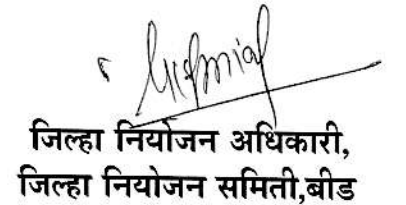 जिल्हा नियोजन अधिकारी,
जिल्हा नियोजन समिती,बीड